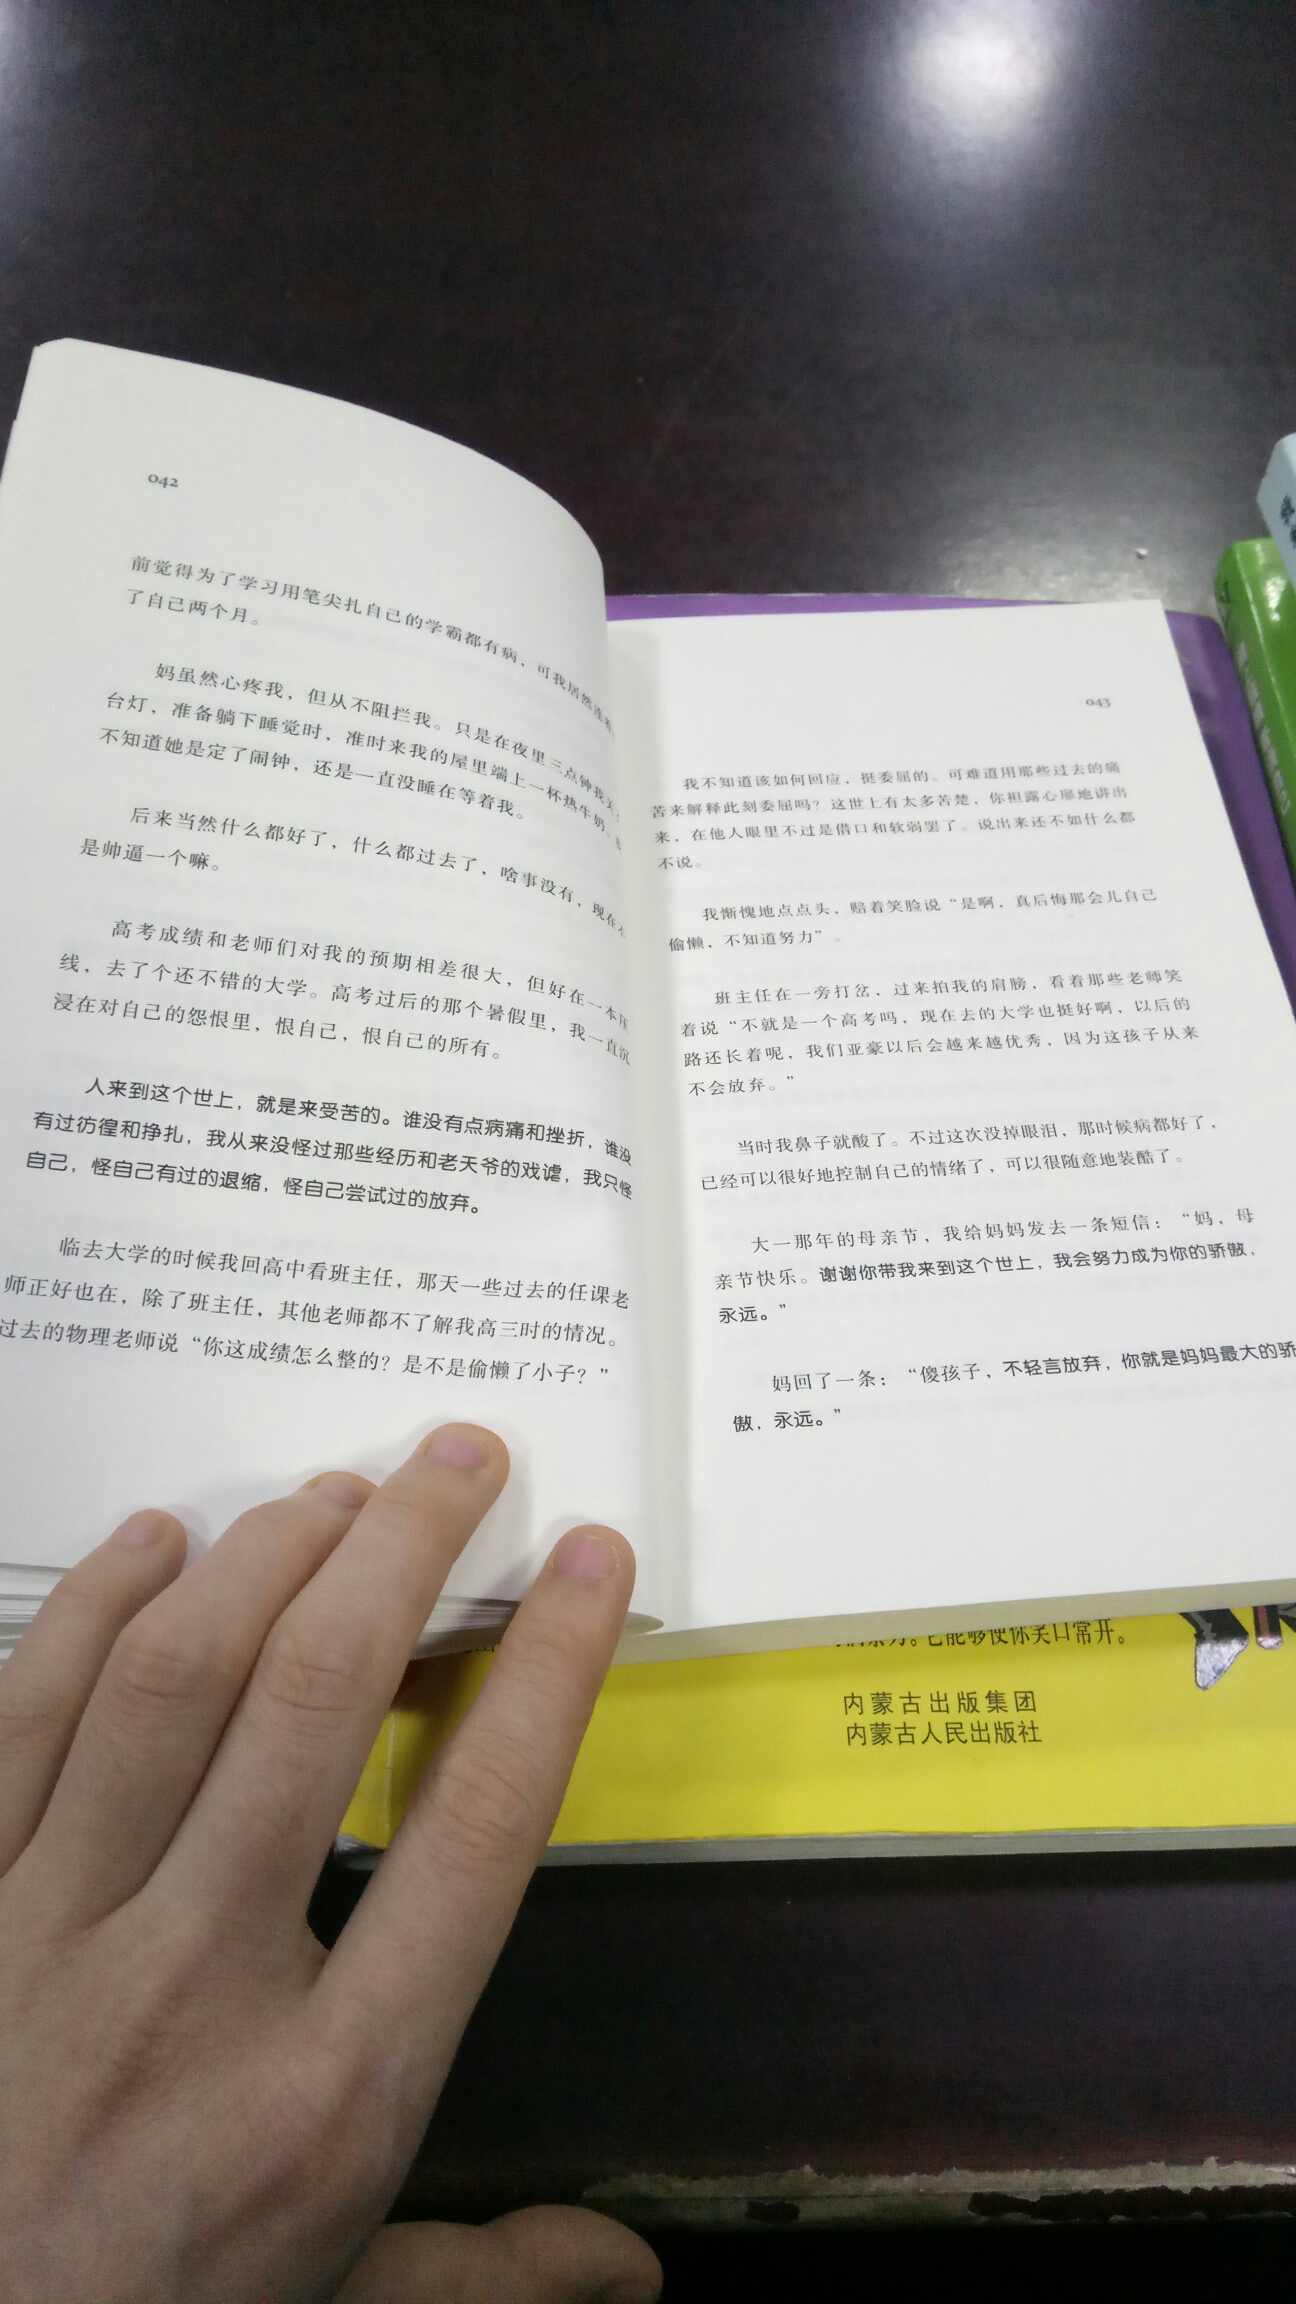 042
前觉得为了学习用笔尖扎自己的学霸都有病，可我居然连
了自己两个月。
妈虽然心疼我，但从不阻拦我。只是在夜里三点钟我关
台灯，准备躺下睡觉时，准时来我的屋里端上一杯热牛奶。
不知道她是定了闹钟，还是一直没睡在等着我。
后来当然什么都好了，什么都过去了，啥事没有，现在
是帅逼一个嘛。
高考成绩和老师们对我的预期相差很大，但好在一本压
线，去了个还不错的大学。高考过后的那个暑假里，我一直沉
浸在对自己的怨恨里，恨自己，恨自己的所有。
人来到这个世上，就是来受苦的。谁没有点病痛和挫折，谁没
有过彷徨和挣扎，我从来没怪过那些经历和老天爷的戏谑，我只怪
自己，怪自己有过的退缩，怪自己尝试过的放弃。
临去大学的时候我回高中看班主任，那天一些过去的任课老
师正好也在，除了班主任，其他老师都不了解我高三时的情况。
过去的物理老师说“你这成绩怎么整的？是不是偷懒了小子？”
043
我不知道该如何回应，挺委屈的。可难道用那些过去的痛
苦来解释此刻委屈吗？这世上有太多苦楚，你袒露心扉地讲出
来，在他人眼里不过是借口和软弱罢了。说出来还不如什么都
不说。
我惭愧地点点头，赔着笑脸说“是啊，真后悔那会儿自己
偷懒，不知道努力”。
班主任在一旁打岔，过来拍我的肩膀，看着那些老师笑
着说“不就是一个高考吗，现在去的大学也挺好啊，以后的
路还长着呢，我们亚豪以后会越来越优秀，因为这孩子从来
不会放弃。”
当时我鼻子就酸了。不过这次没掉眼泪，那时候病都好了，
已经可以很好地控制自己的情绪了，可以很随意地装酷了。
大一那年的母亲节，我给妈妈发去一条短信：“妈，母
亲节快乐。谢谢你带我来到这个世上，我会努力成为你的骄傲，
永远。”
妈回了一条：“傻孩子，不轻言放弃，你就是妈妈最大的骄
傲，永远。”
它能够使你笑口常开。
内蒙古出版集团
内蒙古人民出版社